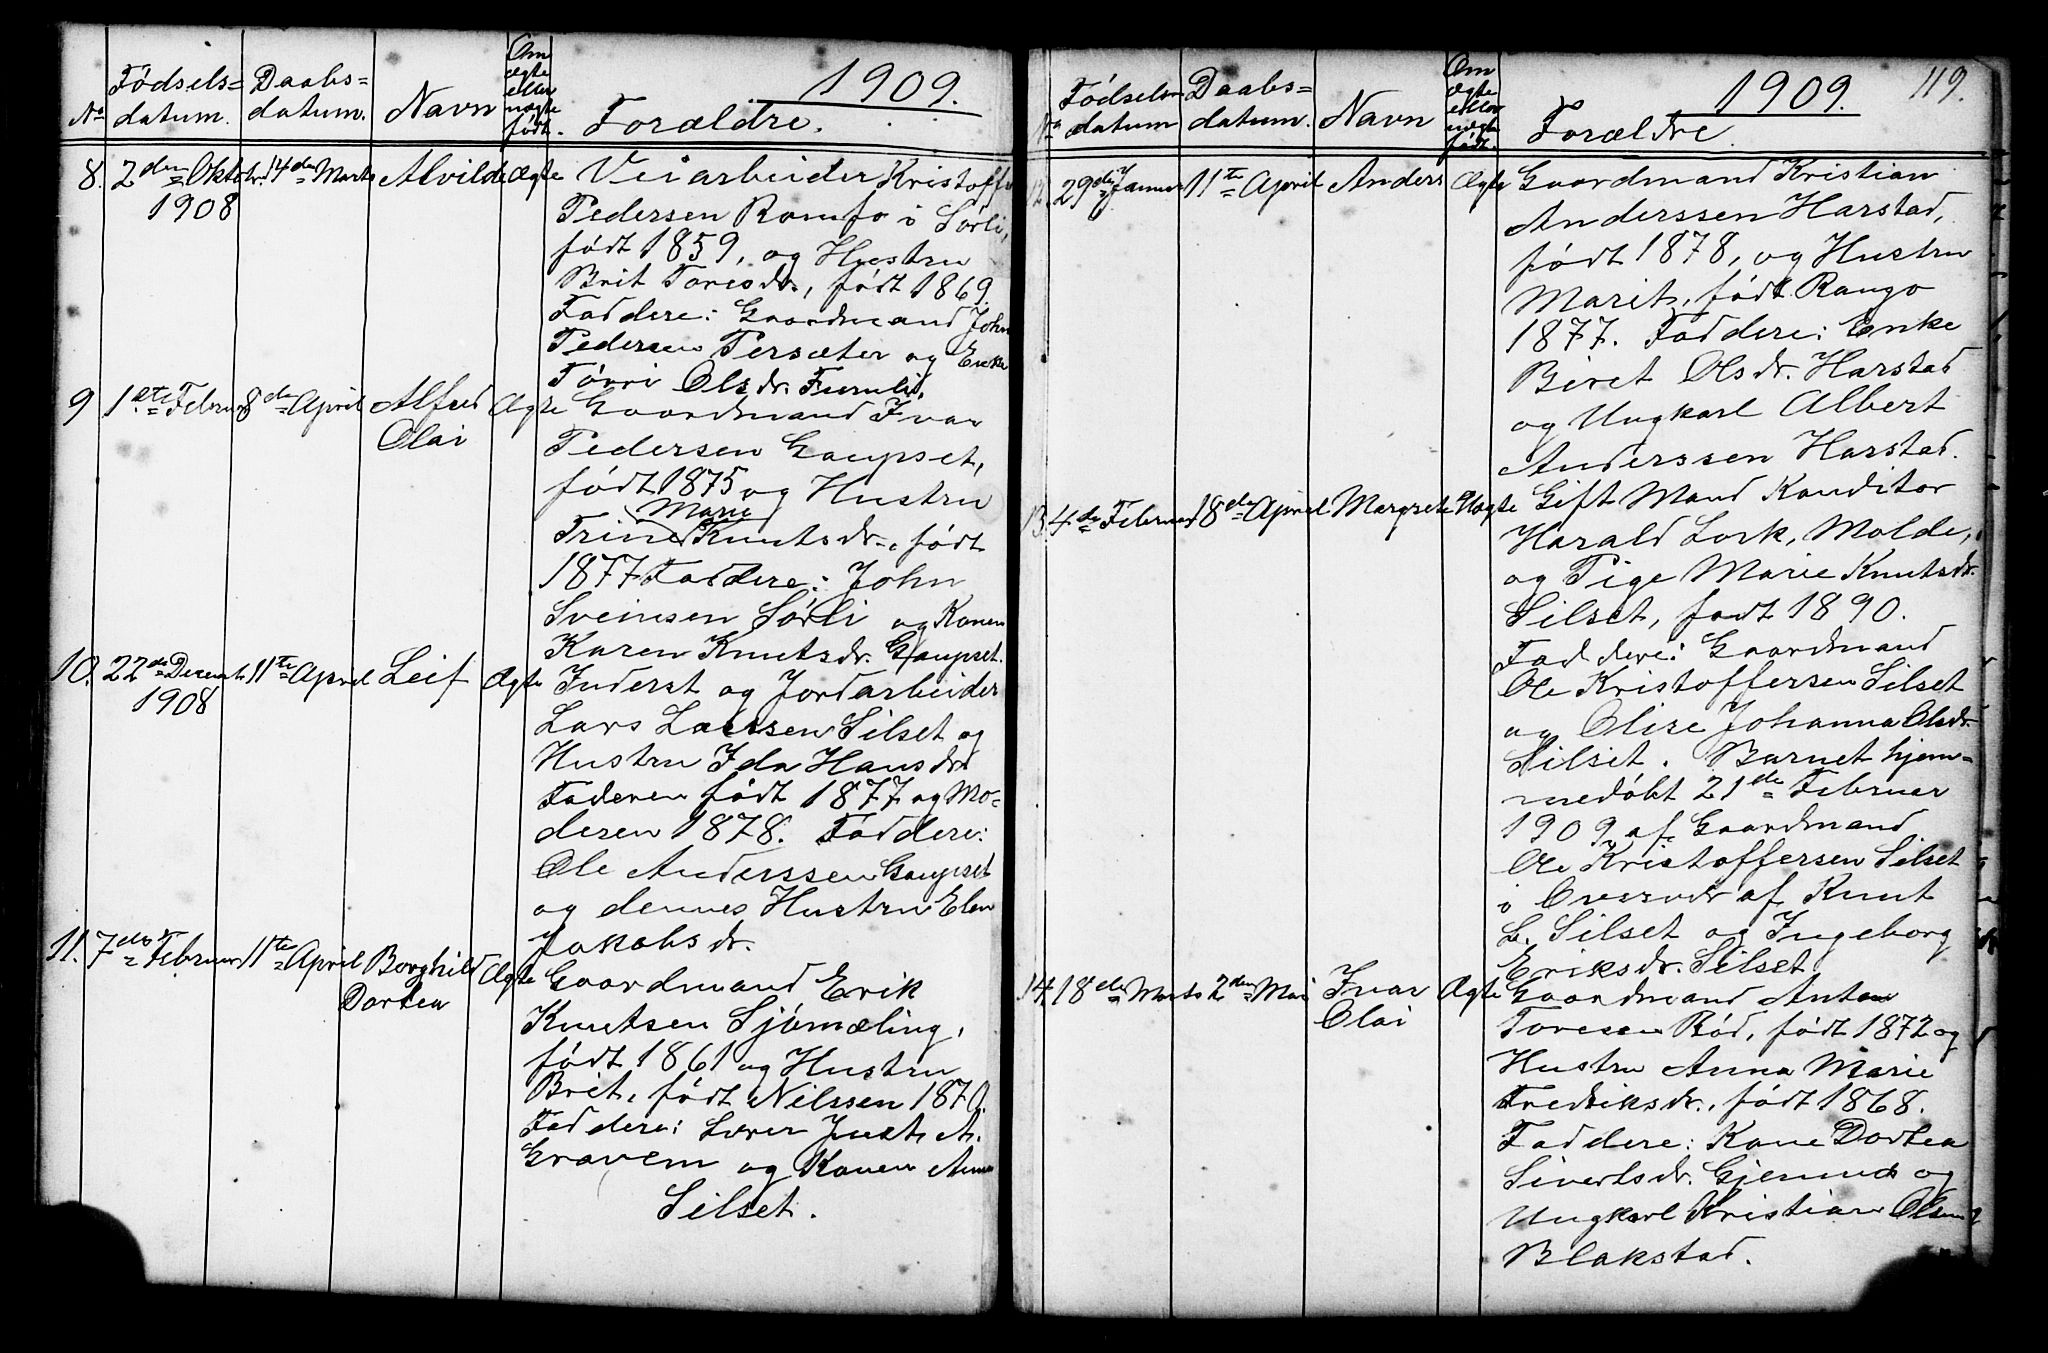 1909.
No Fødsels= datum. Daabs= datum. Navn Om ægte eller uægte født. Forældre.
8. 2den Oktobr. 1908 14de Marts Alvilde Ægte Veiarbeider Kristoffer
Pedersen Romfo i Sørli,
født 1859, og Hustru
Brit Toresdr., født 1869.
Faddere: Gaardmand John
Pedersen Persæter og Enke
Tørri Olsdr. Furuli.
9 1ste Februar 8de April Alfred Olai Ægte Gaardmand Ivar
Pedersen Gaupset,
født 1875 og Hustru
Marie
Trine Knutsdr., født
1877 Faddere: John
Sveinsen Sørli og Konen
Karen Knutsdr. Gaupset.
10. 22de Decemb. 1908 11te April Leif Ægte Inderst og Jordarbeider
Lars Larssen Silset og
Hustru Ida Hansdr.
Faderen født 1877 og Mo=
deren 1878. Faddere:
Ole Anderssen Gaupset
og dennes Hustru Elen
Jakobsdr.
11. 7de Februar 11te April Borghild Dortea Ægte Gaardmand Erik
Knutsen Sjømæling,
født 1861 og Hustru
Brit, født Nilssen 1870.
Faddere: Lærer Just A.
Gravem og Konen Anna
Silset.
1909. 119.
No Fødsels= datum Daabs= datum. Navn Om ægte eller uægte født. Forældre.
12. 29de Januar 11te April Anders Ægte Gaardmand Kristian
Anderssen Harstad,
født 1878, og Hustru
Marit, født Rango
1877. Faddere: Enke
Beret Olsdr. Harstad
og Ungkarl Albert
Anderssen Harstad.
13. 4de Februar 18de April Margrete Uægte Gift Mand Konditor
Harald Lork, Molde,
og Pige Marie Knutsdr.
Silset, født 1890.
Faddere: Gaardmand
Ole Kristoffersen Silset
og Olise Johanna Olsdr.
Silset. Barnet hjem=
medøbt 21de Februar
1909 af Gaardmand
Ole Kristoffersen Silset
i Overvær af Knut
L. Silset og Ingeborg
Eriksdr. Silset
14. 18de Marts 2den Mai Ivar Olai Ægte Gaardmand Anton
Toresen Rød, født 1872 og
Hustru Anna Marie
Fredriksdr., født 1868.
Faddere: Kone Dortea
Sivertsdr. Gjemnes og
Ungkarl Kristian Olsen
Blakstad.